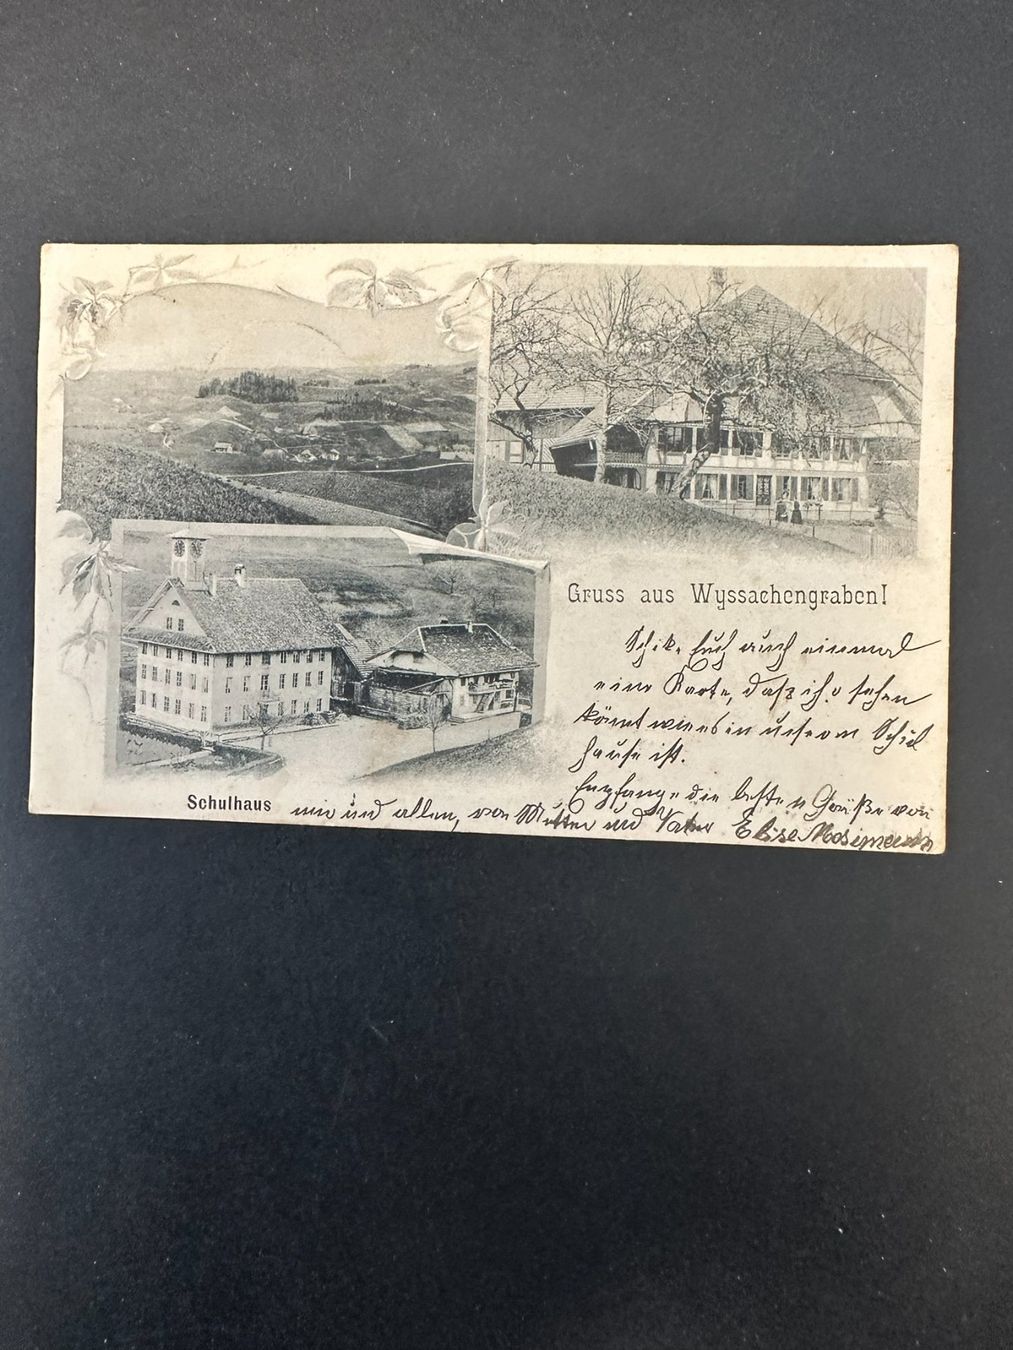 Gruss aus Wyssachengraben!
Schike Euch auch einmal
eine Karte, daß ihr sehen
könnt wie es in unserm Schul
hause ist.
Empfange die besten Grüße von
Schulhaus
mir und allen, von Mutter und Vater Elise Mosimann